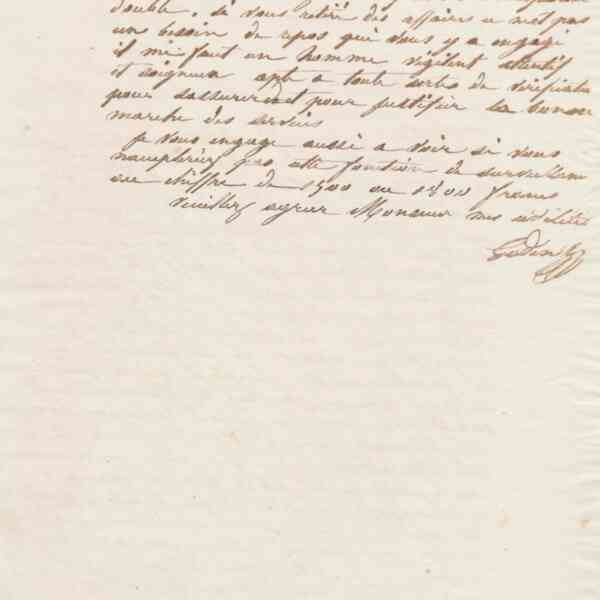 double, si vous retiré des affaires ce n'est pas
un besoin de repos qui vous y a engagé
il me faut un homme vigilent attentif
et soigneux apte a toute sortes de vérification
pour sassurer et pour justifier la bonne
marche des services
Je vous engage aussi a voir si vous
n'auxpliriez pas cette fonction de surveillan
au chiffre de 1500 ou 1800 francs
Veuillez agreer Monsieur mes civilités
Godin